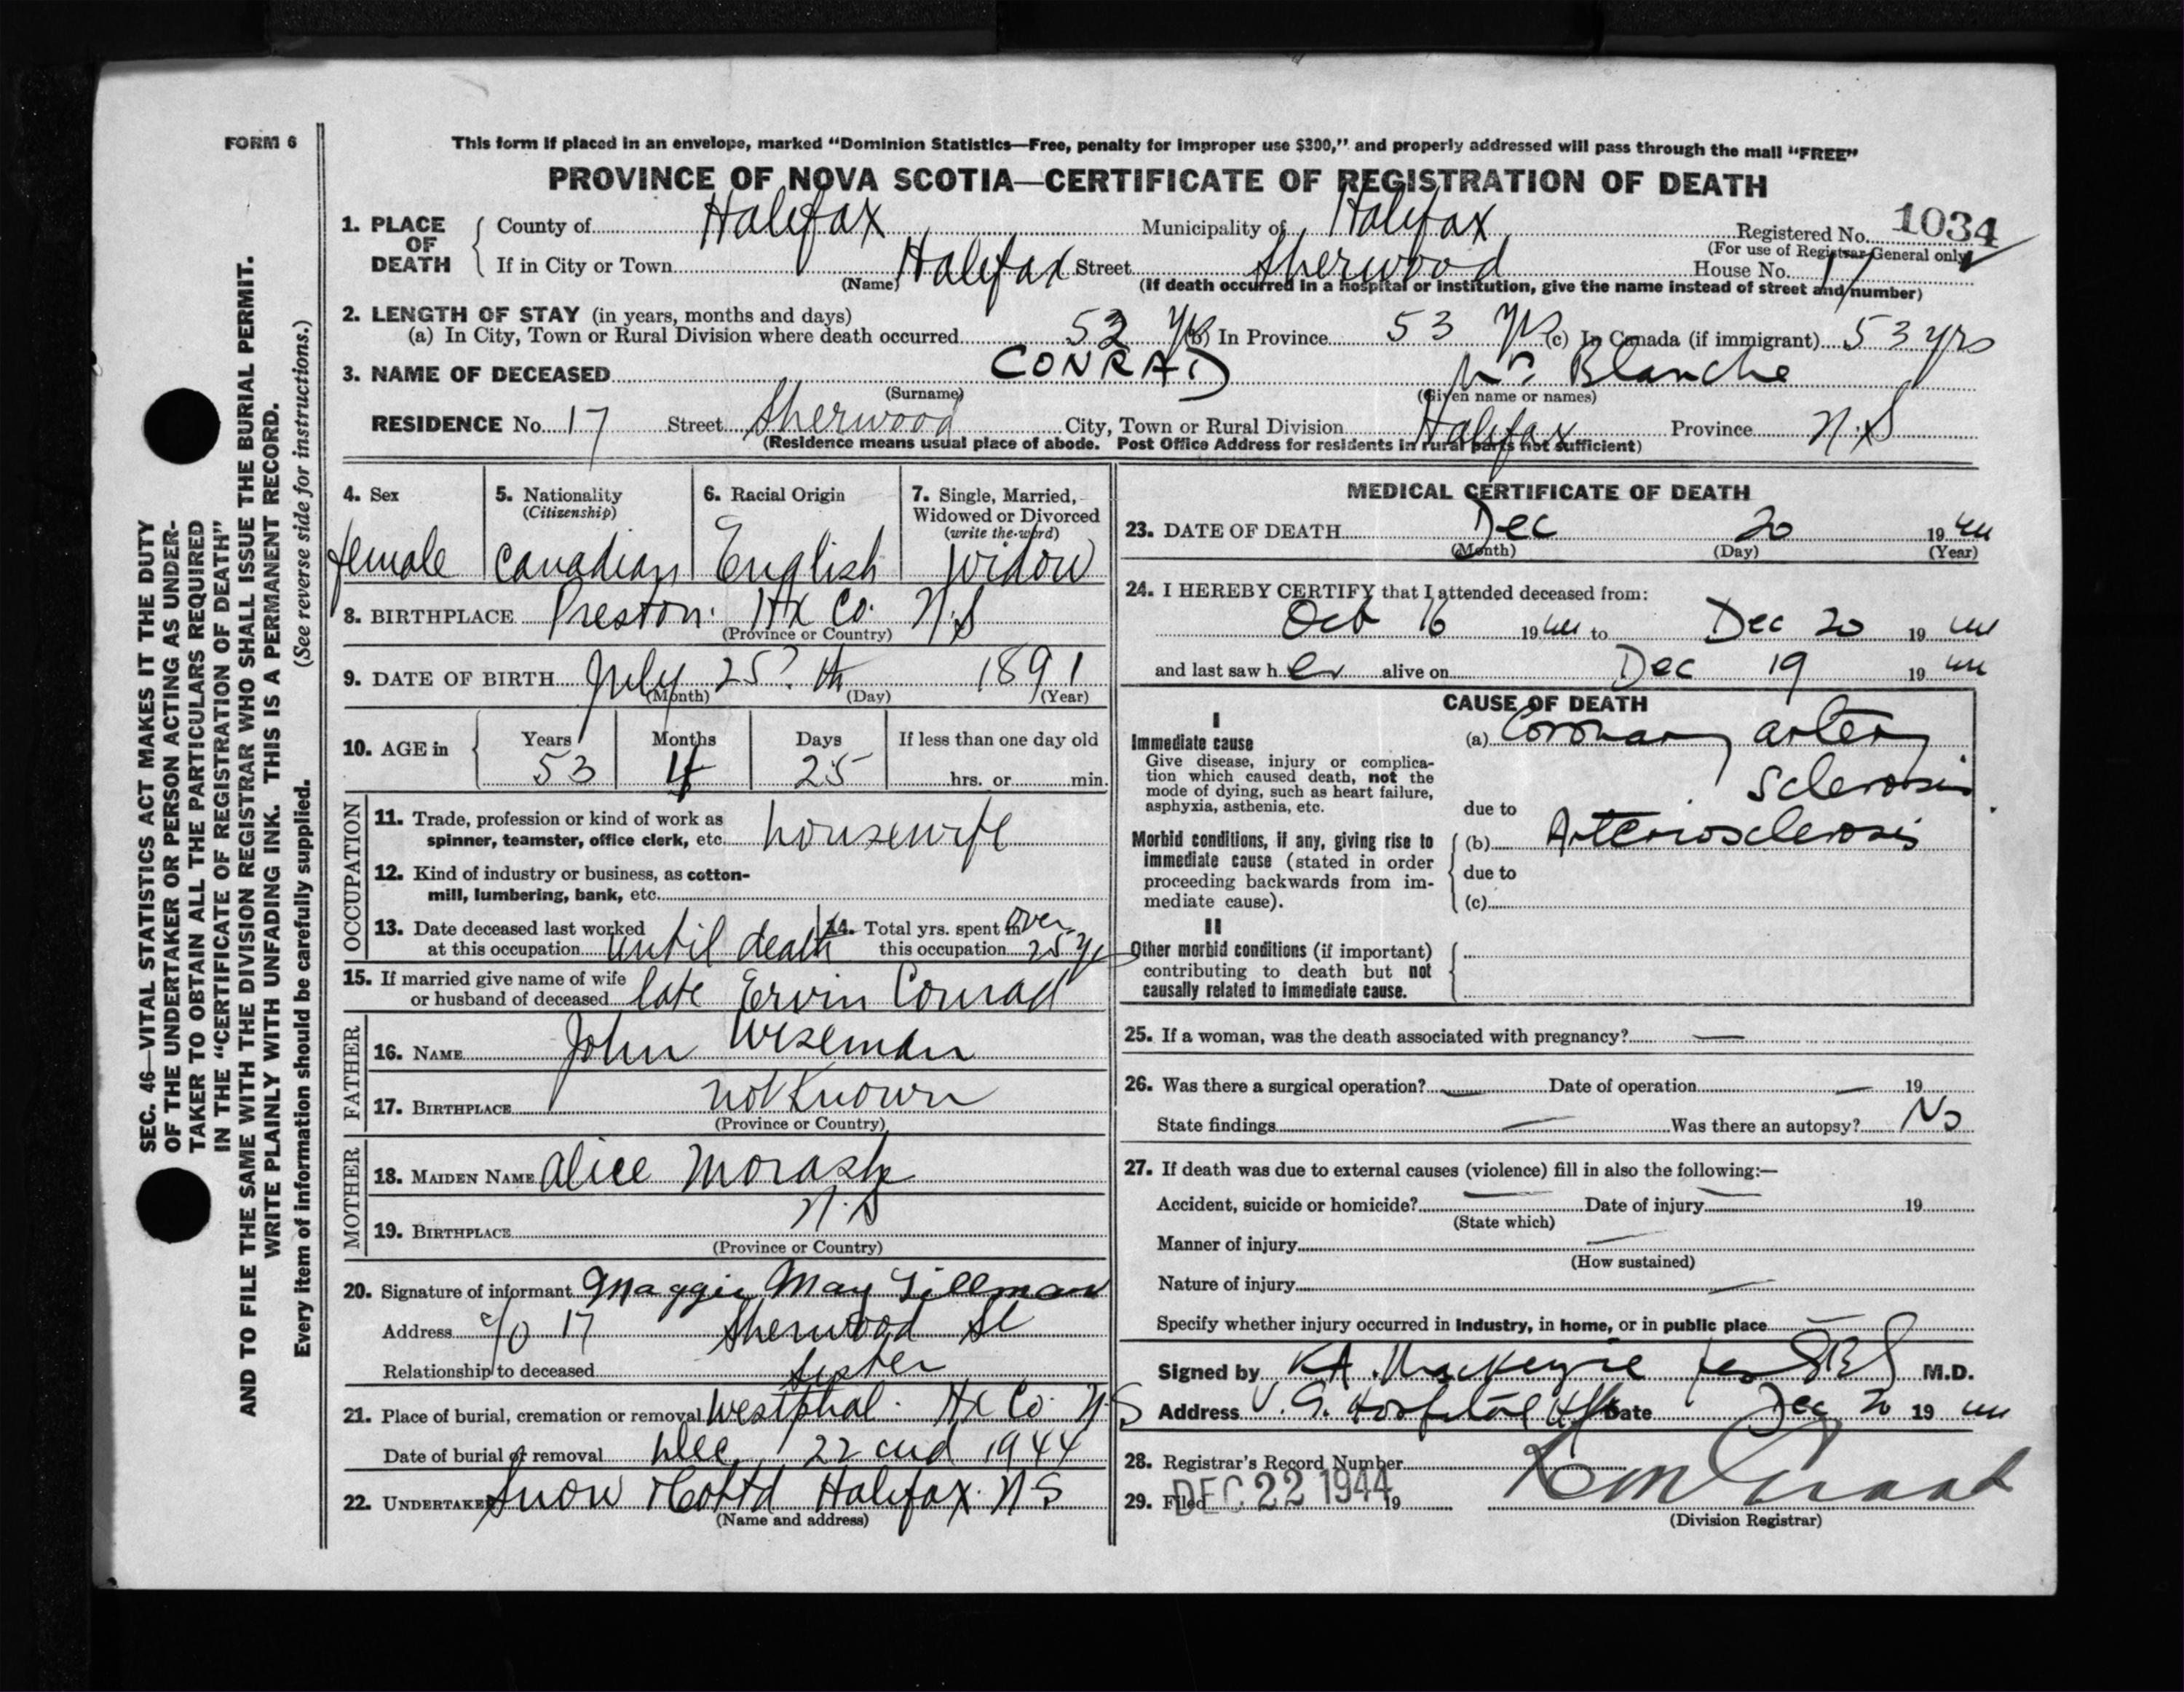 FORM 6
This form if placed in an envelope, marked “Dominion Statistics—Free, penalty for improper use $300,” and properly addressed will pass through the mail “FREE”
PROVINCE OF NOVA SCOTIA—CERTIFICATE OF REGISTRATION OF DEATH
1. PLACE OF DEATH
County of Halifax Municipality of Halifax Registered No. 1034
(For use of Registrar General only)
If in City or Town Halifax Street Sherwood House No. 17
(Name) (If death occurred in a hospital or institution, give the name instead of street and number)
2. LENGTH OF STAY (in years, months and days)
(a) In City, Town or Rural Division where death occurred 52 yrs (b) In Province 53 yrs (c) In Canada (if immigrant) 53 yrs
3. NAME OF DECEASED CONRAD Blanche
(Surname) (Given name or names)
RESIDENCE No. 17 Street Sherwood City, Town or Rural Division Halifax Province N.S
(Residence means usual place of abode. Post Office Address for residents in rural parts not sufficient)
4. Sex female
5. Nationality (Citizenship) Canadian
6. Racial Origin English
7. Single, Married, Widowed or Divorced (write the word) widow
8. BIRTHPLACE Preston. Hx Co. N.S
(Province or Country)
9. DATE OF BIRTH July 25th 1891
(Month) (Day) (Year)
10. AGE in Years 53 Months 4 Days 25 If less than one day old hrs. or min.
OCCUPATION
11. Trade, profession or kind of work as
spinner, teamster, office clerk, etc. housewife
12. Kind of industry or business, as cotton-
mill, lumbering, bank, etc.
13. Date deceased last worked
at this occupation until death
14. Total yrs. spent in
this occupation over 25 yrs
15. If married give name of wife
or husband of deceased late Ervin Conrad
FATHER
16. NAME John Wiseman
17. BIRTHPLACE not Known
(Province or Country)
MOTHER
18. MAIDEN NAME Alice Morash
19. BIRTHPLACE N.S
(Province or Country)
20. Signature of informant Maggie May Tillman
Address c/o 17 Sherwood St
Relationship to deceased sister
21. Place of burial, cremation or removal Westphal. Hx Co. N.S
Date of burial or removal Dec 22 1944
22. UNDERTAKER Snow & Co Ltd Halifax. N S
(Name and address)
MEDICAL CERTIFICATE OF DEATH
23. DATE OF DEATH Dec 20 1944
(Month) (Day) (Year)
24. I HEREBY CERTIFY that I attended deceased from:
Oct 16 1944 to Dec 20 1944
and last saw her alive on Dec 19 1944
CAUSE OF DEATH
I
Immediate cause
Give disease, injury or complica-
tion which caused death, not the
mode of dying, such as heart failure,
asphyxia, asthenia, etc.
(a) Coronary artery
sclerosis
due to
Morbid conditions, if any, giving rise to
immediate cause (stated in order
proceeding backwards from im-
mediate cause).
(b) Arteriosclerosis
due to
(c)
II
Other morbid conditions (if important)
contributing to death but not
causally related to immediate cause.
25. If a woman, was the death associated with pregnancy? —
26. Was there a surgical operation? — Date of operation — 19
State findings — Was there an autopsy? No
27. If death was due to external causes (violence) fill in also the following:—
Accident, suicide or homicide? — Date of injury — 19
(State which)
Manner of injury —
(How sustained)
Nature of injury —
Specify whether injury occurred in industry, in home, or in public place —
Signed by K A. MacKenzie M.D.
Address V. G. Hospital Hfx Date Dec 20 1944
28. Registrar's Record Number
29. Filed DEC 22 1944 19
(Division Registrar)
SEC. 46—VITAL STATISTICS ACT MAKES IT THE DUTY
OF THE UNDERTAKER OR PERSON ACTING AS UNDER-
TAKER TO OBTAIN ALL THE PARTICULARS REQUIRED
IN THE “CERTIFICATE OF REGISTRATION OF DEATH”
AND TO FILE THE SAME WITH THE DIVISION REGISTRAR WHO SHALL ISSUE THE BURIAL PERMIT.
WRITE PLAINLY WITH UNFADING INK. THIS IS A PERMANENT RECORD.
Every item of information should be carefully supplied. (See reverse side for instructions.)